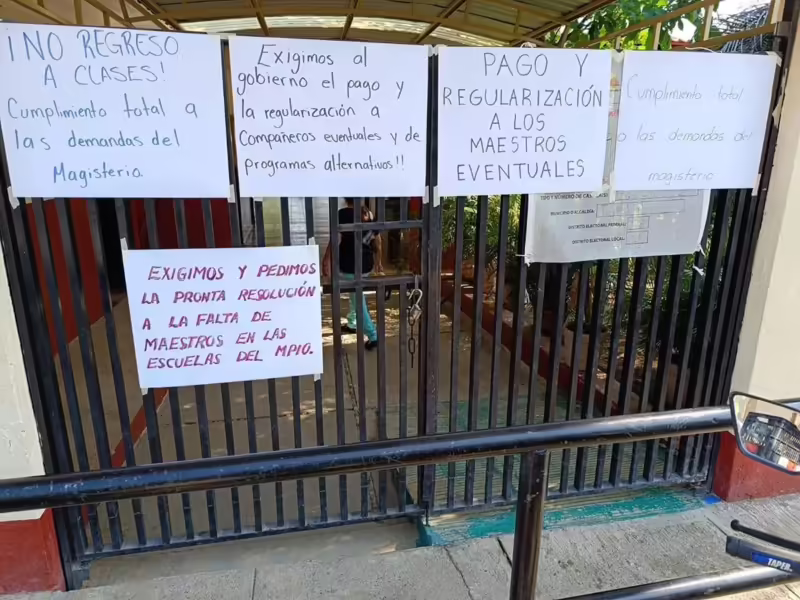 ¡NO REGRESO
A CLASES!
Cumplimiento total a
las demandas del
Magisterio.
Exigimos al
gobierno el pago y
la regularización a
Compañeros eventuales y de
programas alternativos!!
PAGO Y
REGULARIZACIÓN
A LOS
MAESTROS
EVENTUALES
Cumplimiento total
a las demandas del
magisterio
TIPO Y NÚMERO DE
DISTRITO ELECTORAL FEDERAL
DISTRITO ELECTORAL LOCAL
EXIGIMOS Y PEDIMOS
LA PRONTA RESOLUCIÓN
A LA FALTA DE
MAESTROS EN LAS
ESCUELAS DEL MPIO.
TAPER.